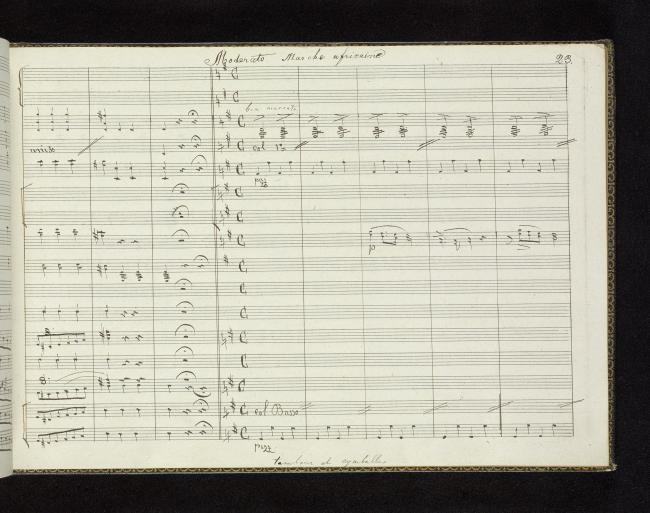 Moderato Marche africaine 23.
ben marcato
unito col 1º
pizz
p
8
col Basso
pizz
tambour et cymballes